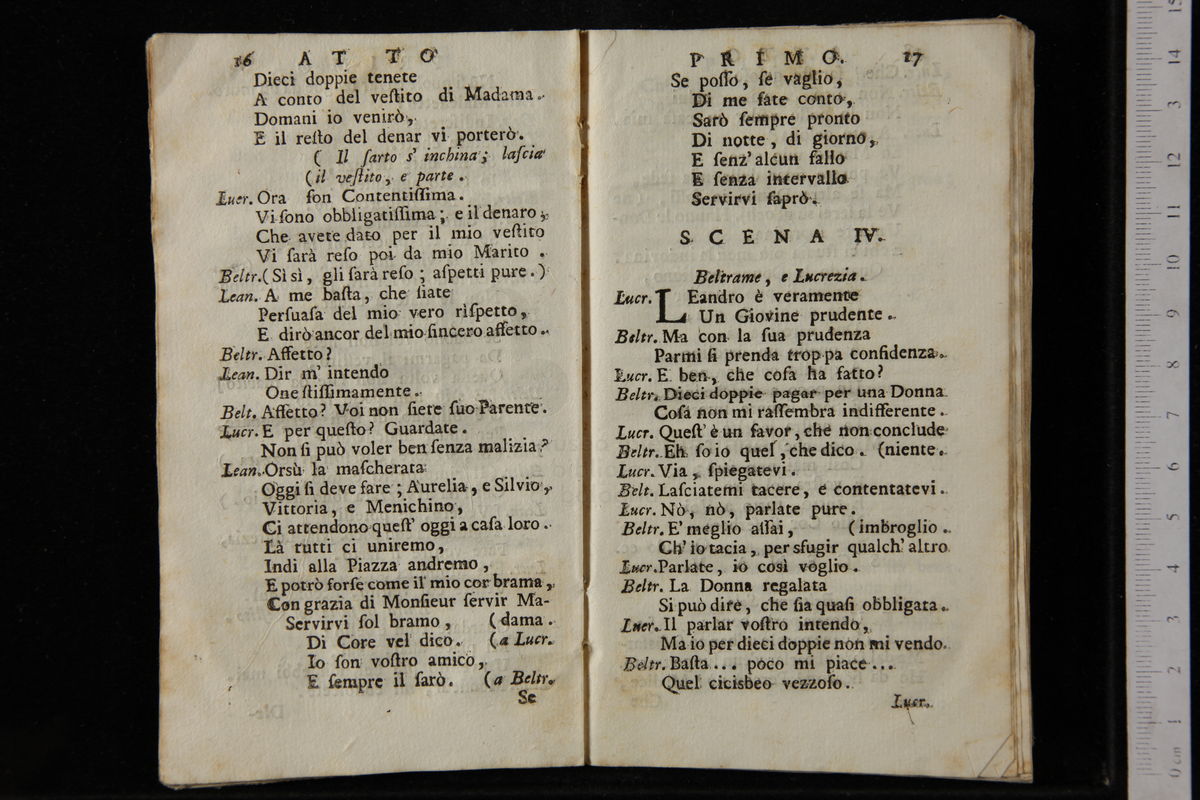 16 ATTO
Dieci doppie tenete
A conto del veſtito di Madama.
Domani io venirò,
E il reſto del denar vi porterò.
( Il ſarto s' inchina; laſcia
( il veſtito, e parte.
Lucr. Ora ſon Contentiſſima.
Vi ſono obbligatiſſima; e il denaro,
Che avete dato per il mio veſtito
Vi ſarà reſo poi da mio Marito.
Beltr. ( Sì sì, gli ſarà reſo; aſpetti pure. )
Lean. A me baſta, che ſiate
Perſuaſa del mio vero riſpetto,
E dirò ancor del mio ſincero affetto.
Beltr. Affetto?
Lean. Dir m' intendo
Oneſtiſſimamente.
Belt. Affetto? Voi non ſiete ſuo Parente.
Lucr. E per queſto? Guardate.
Non ſi può voler ben ſenza malizia?
Lean. Orsù la maſcherata
Oggi ſi deve fare; Aurelia, e Silvio,
Vittoria, e Menichino,
Ci attendono queſt' oggi a caſa loro.
Là tutti ci uniremo,
Indi alla Piazza andremo,
E potrò forſe come il mio cor brama,
Con grazia di Monſieur ſervir Ma-
Servirvi ſol bramo, (dama.
Di Core vel dico. (a Lucr.
Io ſon voſtro amico,
E ſempre il ſarò. (a Beltr.
Se
PRIMO. 17
Se poſſo, ſe vaglio,
Di me fate conto,
Sarò ſempre pronto
Di notte, di giorno,
E ſenz' alcun fallo
E ſenza intervallo
Servirvi ſaprò.
SCENA IV.
Beltrame, e Lucrezia.
Lucr. LEandro è veramente
Un Giovine prudente.
Beltr. Ma con la ſua prudenza
Parmi ſi prenda troppa confidenza.
Lucr. E ben, che coſa ha fatto?
Beltr. Dieci doppie pagar per una Donna
Coſa non mi raſſembra indifferente.
Lucr. Queſt' è un favor, che non conclude
Beltr. Eh ſo io quel, che dico. (niente.
Lucr. Via, ſpiegatevi.
Belt. Laſciatemi tacere, e contentatevi.
Lucr. Nò, nò, parlate pure.
Beltr. E' meglio aſſai, (imbroglio.
Ch' io tacia, per sfugir qualch' altro
Lucr. Parlate, io così voglio.
Beltr. La Donna regalata
Si può dire, che ſia quaſi obbligata.
Lucr. Il parlar voſtro intendo,
Ma io per dieci doppie non mi vendo.
Beltr. Baſta... poco mi piace...
Quel cicisbeo vezzoſo.
Lucr.
0 cm 1 2 3 4 5 6 7 8 9 10 11 12 3 14 15